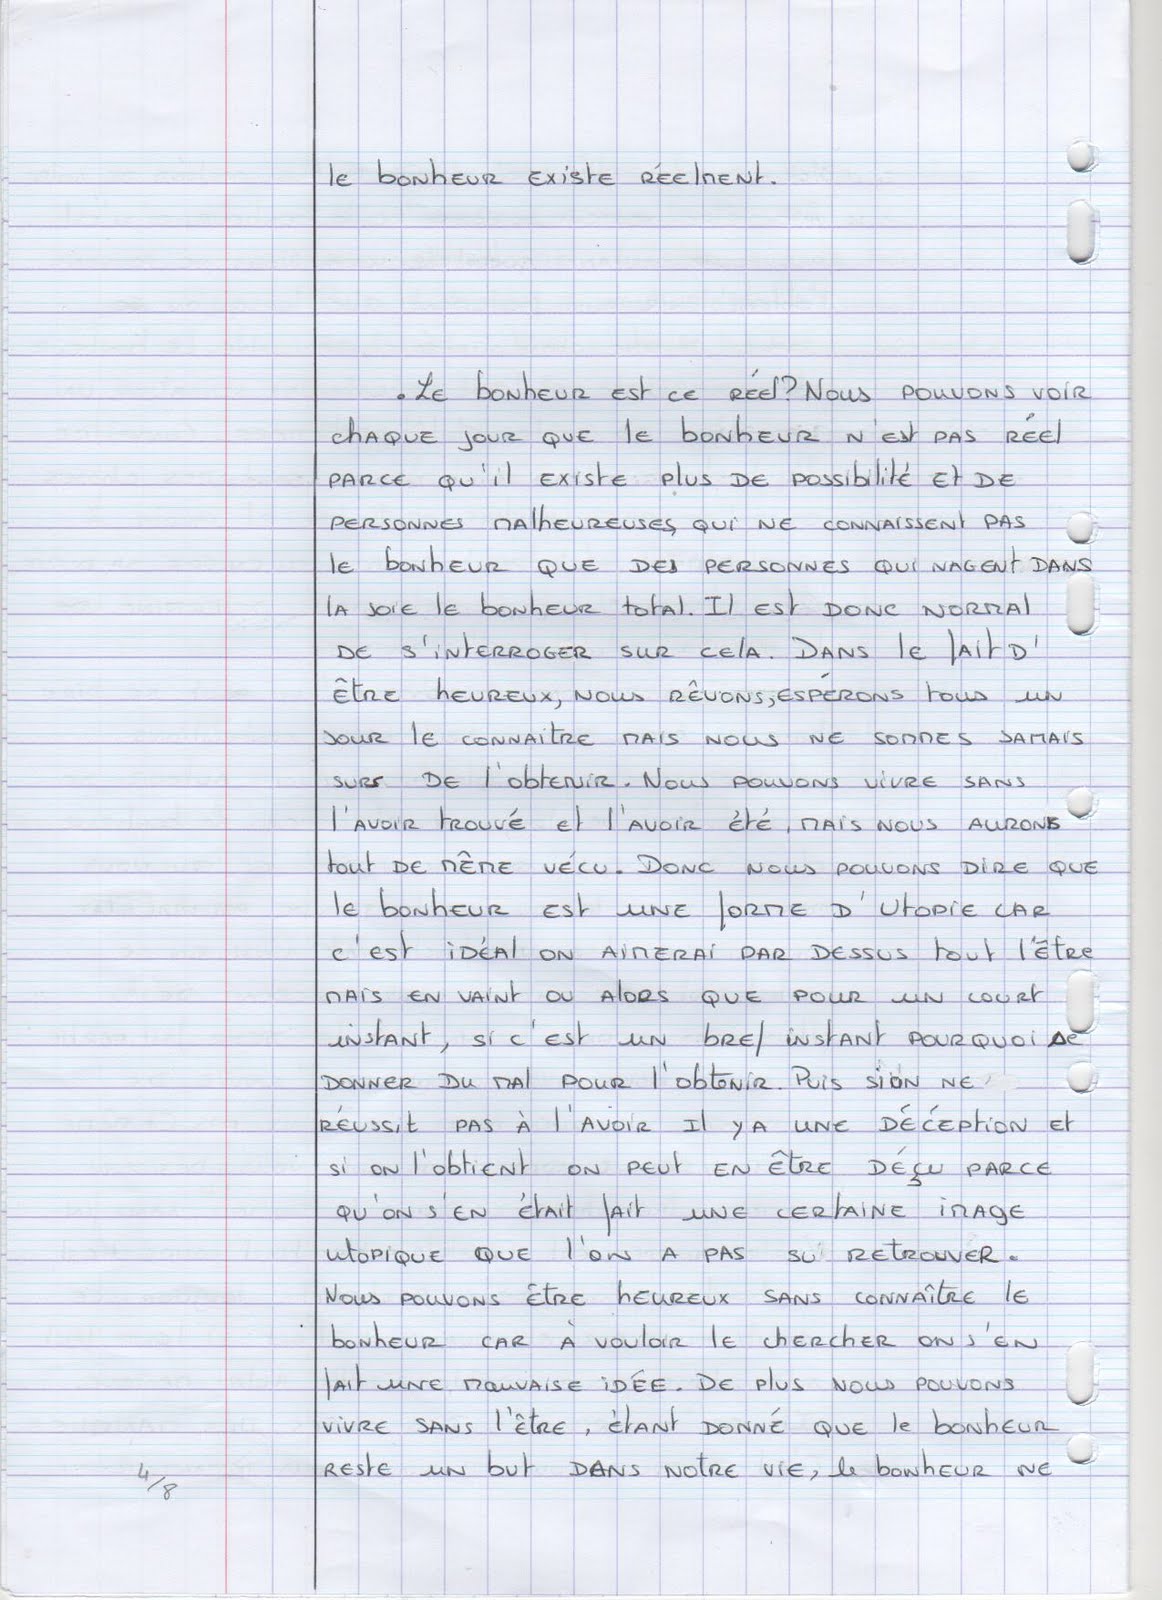 le bonheur existe réelment.
. Le bonheur est ce réel? Nous pouvons voir
chaque jour que le bonheur n'est pas réel
parce qu'il existe plus de possibilité et de
personnes malheureuses, qui ne connaissent pas
le bonheur que des personnes qui nagent dans
la joie le bonheur total. Il est donc normal
de s'interroger sur cela. Dans le fait d'
être heureux, nous rêvons, espérons tous un
jour le connaitre mais nous ne sommes jamais
surs de l'obtenir. Nous pouvons vivre sans
l'avoir trouvé et l'avoir été, mais nous aurons
tout de même vécu. Donc nous pouvons dire que
le bonheur est une forme d'utopie car
c'est idéal on aimerai par dessus tout l'être
mais en vaint ou alors que pour un court
instant, si c'est un bref instant pourquoi se
donner du mal pour l'obtenir. Puis si on ne
réussit pas à l'avoir il y a une déception et
si on l'obtient on peut en être déçu parce
qu'on s'en était fait une certaine image
utopique que l'on a pas su retrouver.
Nous pouvons être heureux sans connaître le
bonheur car à vouloir le chercher on s'en
fait une mauvaise idée. De plus nous pouvons
vivre sans l'être, étant donné que le bonheur
reste un but dans notre vie, le bonheur ne
4/8